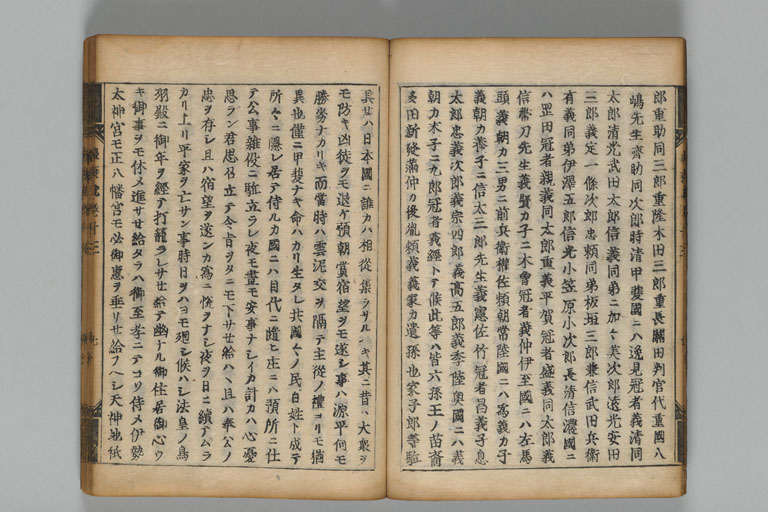 郎重助同三郎重隆木田三郎重長關田判官代重國八
嶋先生齊助同次郎時清甲斐國ニハ逸見冠者義清同
太郎清光武田太郎信義同弟ニ加々美次郎遠光安田
三郎義定一條次郎忠頼同弟板垣三郎兼信武田兵衛
有義同弟伊澤五郎信光小笠原小次郎長清信濃國ニ
ハ岡田冠者親義同太郎重義平賀冠者盛義同太郎義
信帶刀先生義賢カ子ニ木曾冠者義仲伊豆國ニハ左馬
頭義朝カ三男ニ前兵衛權佐頼朝常陸國ニハ爲義カ子
義朝カ養子ニ信太三郎先生義憲佐竹冠者昌義子息
太郎忠義次郎義宗四郎義高五郎義季陸奥國ニハ義
朝カ末子ニ九郎冠者義經トテ候此等ハ皆六孫王ノ苗裔
多田新發滿仲カ後胤頼義義家カ遺孫也家子郎等駈
具セハ日本國ニ誰カハ相從集ラサルヘキ其ニ昔ハ大衆ヲ
モ防キ凶徒ヲモ退ケ預朝賞宿望ヲモ遂シ事ハ源平何モ
勝劣ナカリキ而當時ハ雲泥交ヲ隔テ主從ノ禮ヨリモ猶
異也僅ニ甲斐ナキ命ハカリ生タレ共國々ノ民百姓ト成テ
所々ニ隱レ居テ侍ルカ國ニハ目代ニ隨ヒ庄ニハ預所ニ仕
テ公事雜役ニ駈立ラレ夜モ晝モ安事ナシイカ計カハ心憂
思ラン君思召立テ令旨ヲタニモ下サセ給ハヽ且ハ奉公ノ
忠ヲ存シ且ハ宿望ヲ遂ンカ爲ニ悦ヲナシ夜ヲ日ニ續テムラ
カリ上リ平家ヲ亡サン事時日ヲハヨモ廻シ候ハシ法皇ノ鳥
羽殿ニ御年ヲ經テ打籠ラレサセ給テ幽ナル御住居御心ウ
キ御事ヲモ休メ進サセ給タラハ御至孝ニテコソ侍メ伊勢
太神宮モ正八幡宮モ必御惠ヲ垂サセ給フヘシ天神地祇